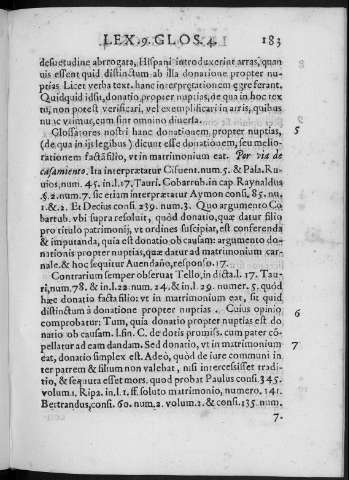 LEX.9. GLOS.4. 183
desuetudine abrrogata, Hispani introduxerint arras, quan
uis essent quid distinctum ab illa donatione propter nu-
ptias Licet verba text. hanc interpretationem ęgre ferant.
Quidquid id sit, donatio, propter nuptias, de qua in hoc tex
tu, non potest verificari, vel exemplificari in arris, quibus
nunc vtimur, cum sint omnino diuersa.
Glossatores nostri hanc donationem, propter nuptias, 5
(de qua in ijs legibus) dicunt esse donationem, seu melio-
rationem factã filio, vt in matrimonium eat. Por via de
casamiento. Ita interprætatur Cifuent. num. 5. & Pala. Ru-
uios, num. 45. in l. 17. Tauri. Cobarrub. in cap. Raynaldus
§. 2. num. 7. sic etiam interprætatur Aymon consi. 85. nu.
1. & 2. Et Decius consi. 239. num. 3. Quo argumento Co
barrub. vbi supra resoluit, quòd donatio, quæ datur filio
pro titulo patrimonij, vt ordines suscipiat, est conferenda
& imputanda, quia est donatio ob causam: argumento do-
nationis propter nuptias, quæ datur ad matrimonium car-
nale. & hoc sequitur Auendaño, responso. 17.
Contrarium semper obseruat Tello, in dicta. l. 17. Tau-
ri, num. 78. & in l. 22. num. 24. & in l. 29. numer. 5. quòd
hæc donatio facta filio: vt in matrimonium eat, sit quid
distinctum à donatione propter nuptias. Cuius opinio 6
comprobatur; Tum, quia donatio propter nuptias est do
natio ob causam. l. fin. C. de dotis promiss. cum pater cõ-
pellatur ad eam dandam. Sed donatio, vt in matrimonium 7
eat, donatio simplex est. Adeò, quòd de iure communi in
ter patrem & filium non valebat, nisi intercessisset tradi-
tio, & sequuta esset mors. quod probat Paulus consi. 345.
volum. 1. Ripa. in l. 1. ff. soluto matrimonio, numero. 141.
Bertrandus, consi. 60. num. 2. volum. 2. & consi. 135. num.
7.